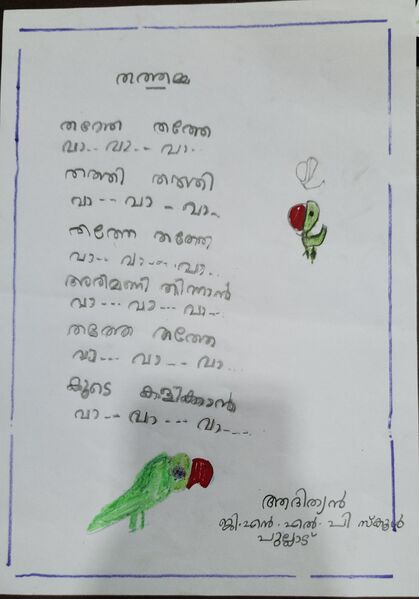 തത്തമ്മ
തത്തേ തത്തേ
വാ.. വാ.. വാ..
തത്തി തത്തി
വാ -- വാ - വാ..
തത്തേ തത്തേ
വാ -- വാ --- വാ...
അരിമണി തിന്നാൻ
വാ --- വാ -- വാ--
തത്തേ തത്തേ
വാ --- വാ -- വാ...
കൂടെ കളിക്കാൻ
വാ -- വാ --- വാ----
ആദിത്യൻ
ജി.എൻ.എൽ.പി സ്കൂൾ
പുല്ലോട്